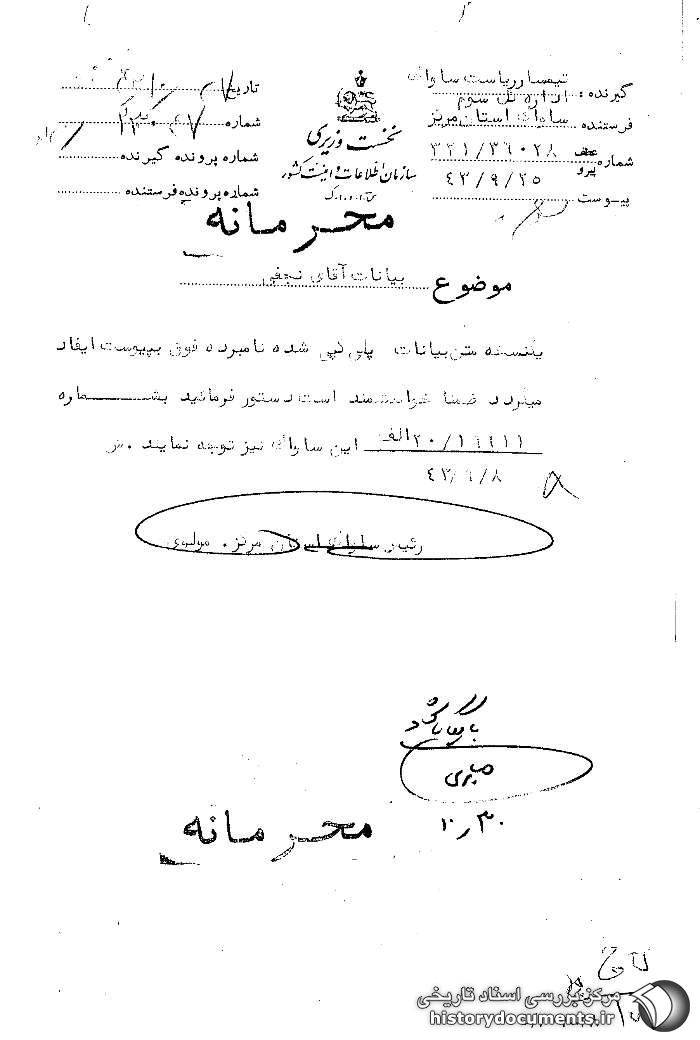 گیرنده : تیمسار ریاست ساواک
اداره کل سوم
فرستنده ساواک استان مرکز
شماره عطف پیرو ۳۲۱/۳۶۰۲۸
۴۳/۹/۲۵
پیوست
نخست وزیری
سازمان اطلاعات و امنیت کشور
س.ا.و.ا.ک
تاریخ
شماره
شماره پرونده گیرنده
شماره پرونده فرستنده
محرمانه
موضوع بیانات آقای نجفی
یکنسخه متن بیانات پلی کپی شده نامبرده فوق بپیوست ایفاد
میگردد ضمنا خواهشمند است دستور فرمائید بشماره
این ساواک نیز توجه نمایند . س
رئیس ساواک استان مرکز . مولوی
صابری
۱۰/۳۰
محرمانه
مرکز بررسی اسناد تاریخی
historydocuments.ir